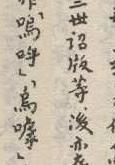 三世詔版等、後亦
「嗚呼」「烏嘑」